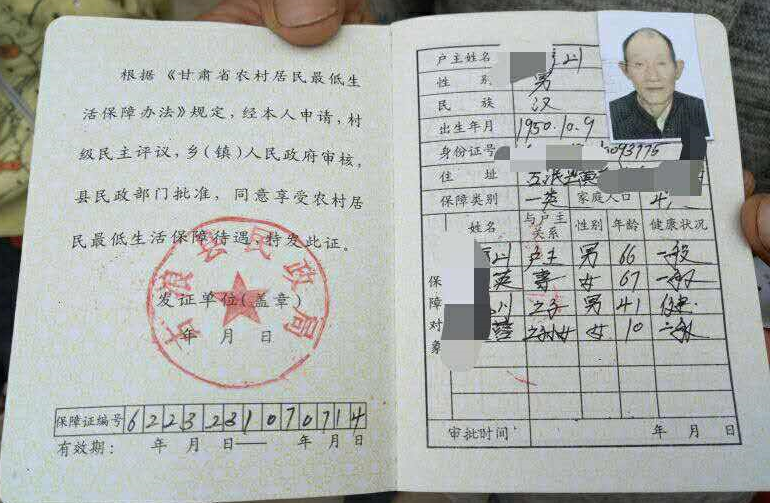 根据《甘肃省农村居民最低生
活保障办法》规定，经本人申请，村
级民主评议，乡（镇）人民政府审核，
县民政部门批准，同意享受农村居
民最低生活保障待遇，特发此证。
古浪县民政局
发证单位（盖章）
年 月 日
保障证编号 6223231070714
有效期： 年 月 日—— 年 月 日
户主姓名
性 别 男
民 族 汉
出生年月 1950.10.9
身份证号
住 址
保障类别 一类 家庭人口 4人
保障对象
姓名 与户主关系 性别 年龄 健康状况
户主 男 66 一般
妻 女 67 一般
之子 男 41 健康
之孙女 女 10 一般
审批时间 年 月 日